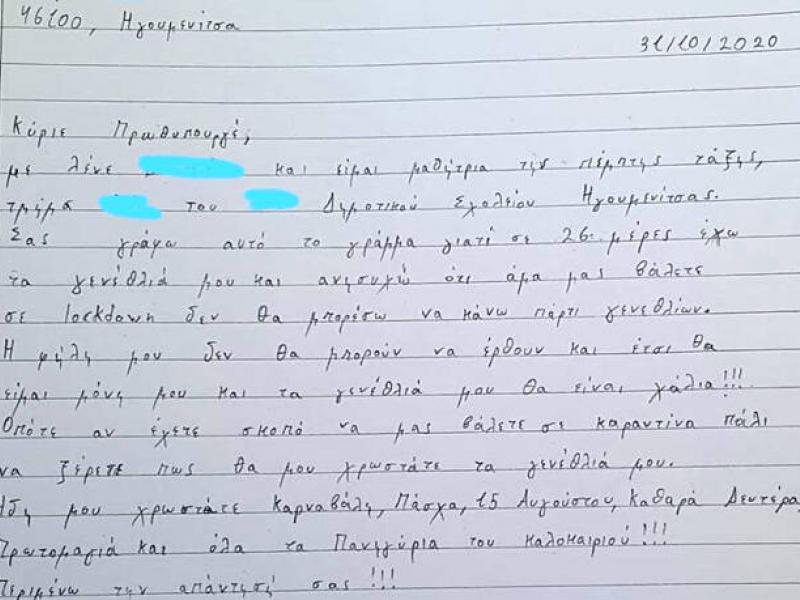 46100, Ηγουμενίτσα
31/10/2020
Κύριε Πρωθυπουργέ,
με λένε και είμαι μαθήτρια της πέμπτης τάξης,
τμήμα του Δημοτικού Σχολείου Ηγουμενίτσας.
Σας γράφω αυτό το γράμμα γιατί σε 26 μέρες έχω
τα γενέθλιά μου και ανησυχώ ότι άμα μας βάλετε
σε lockdown δεν θα μπορέσω να κάνω πάρτι γενεθλίων.
Η φήλη μου δεν θα μπορούν να έρθουν και έτσι θα
είμαι μόνη μου και τα γενέθλιά μου θα είναι χάλια!!!
Οπότε αν έχετε σκοπό να μας βάλετε σε καραντίνα πάλι
να ξέρετε πως θα μου χρωστάτε τα γενέθλιά μου.
Ήδη μου χρωστάτε Καρναβάλη, Πάσχα, 15 Αυγούστου, Καθαρά Δευτέρα,
Πρωτομαγιά και όλα τα Πανηγύρια του καλοκαιριού!!!
Περιμένω την απάντησή σας!!!